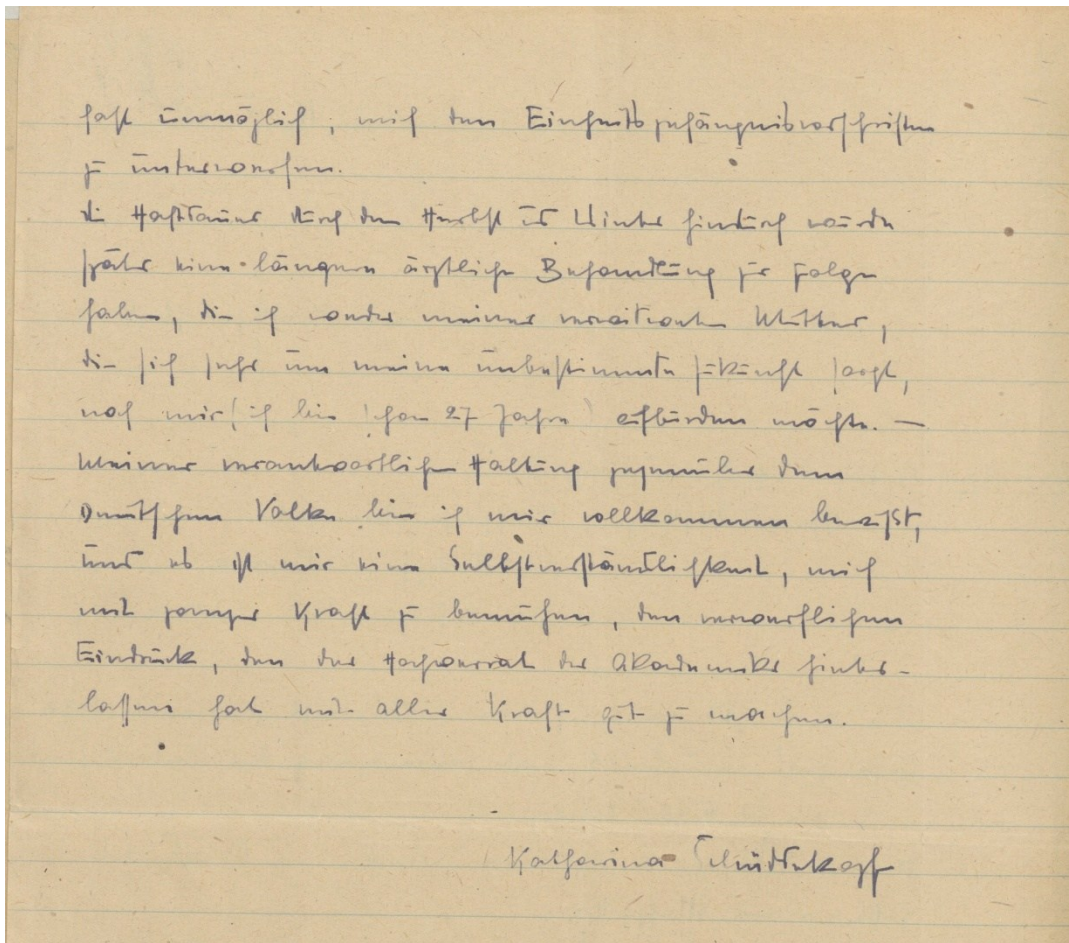 fast unmöglich, mich den Einheitsgefängnisvorschriften
zu unterwerfen.
die Haftdauer durch den Herbst und Winter hindurch würde
später eine längere ärztliche Behandlung zur Folge
haben, die ich weder meiner verwitweten Mutter,
die sich sehr um meine unbestimmte Zukunft sorgt,
noch mir (ich bin schon 27 Jahre) aufbürden möchte. —
Meiner verantwortlichen Haltung gegenüber dem
Deutschen Volke bin ich mir vollkommen bewußt,
und es ist mir eine Selbstverständlichkeit, mich
mit ganzer Kraft zu bemühen, den verwerflichen
Eindruck, den der Hochverrat der Akademiker hinter-
lassen hat mit aller Kraft gut zu machen.
Katharina Schüddekopf